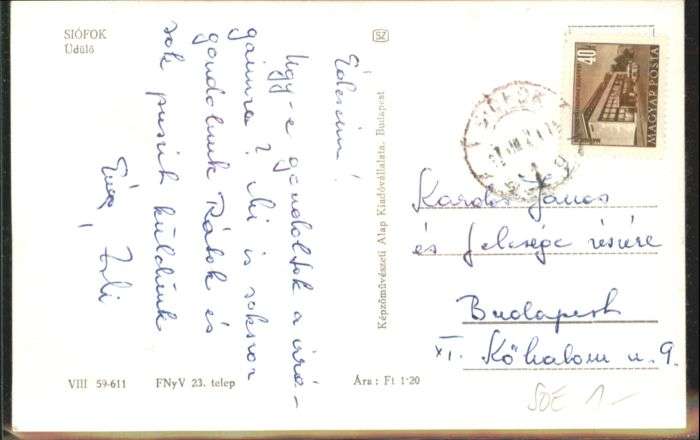 SIÓFOK
Üdülő
SZ
Édeseim!
Ugye gondoltok a virá-
gaimra? Mi is sokszor
gondolunk Rátok és
sok puszit küldünk
Éva,
Képzőművészeti Alap Kiadóvállalata, Budapest
40
MAGYAR POSTA
SIÓFOK
Kardos János
és felesége részére
Budapest
XI. Kőhalom u. 9.
VIII 59-611
FNyV 23. telep
Ára: Ft 1·20
SOE 1.-